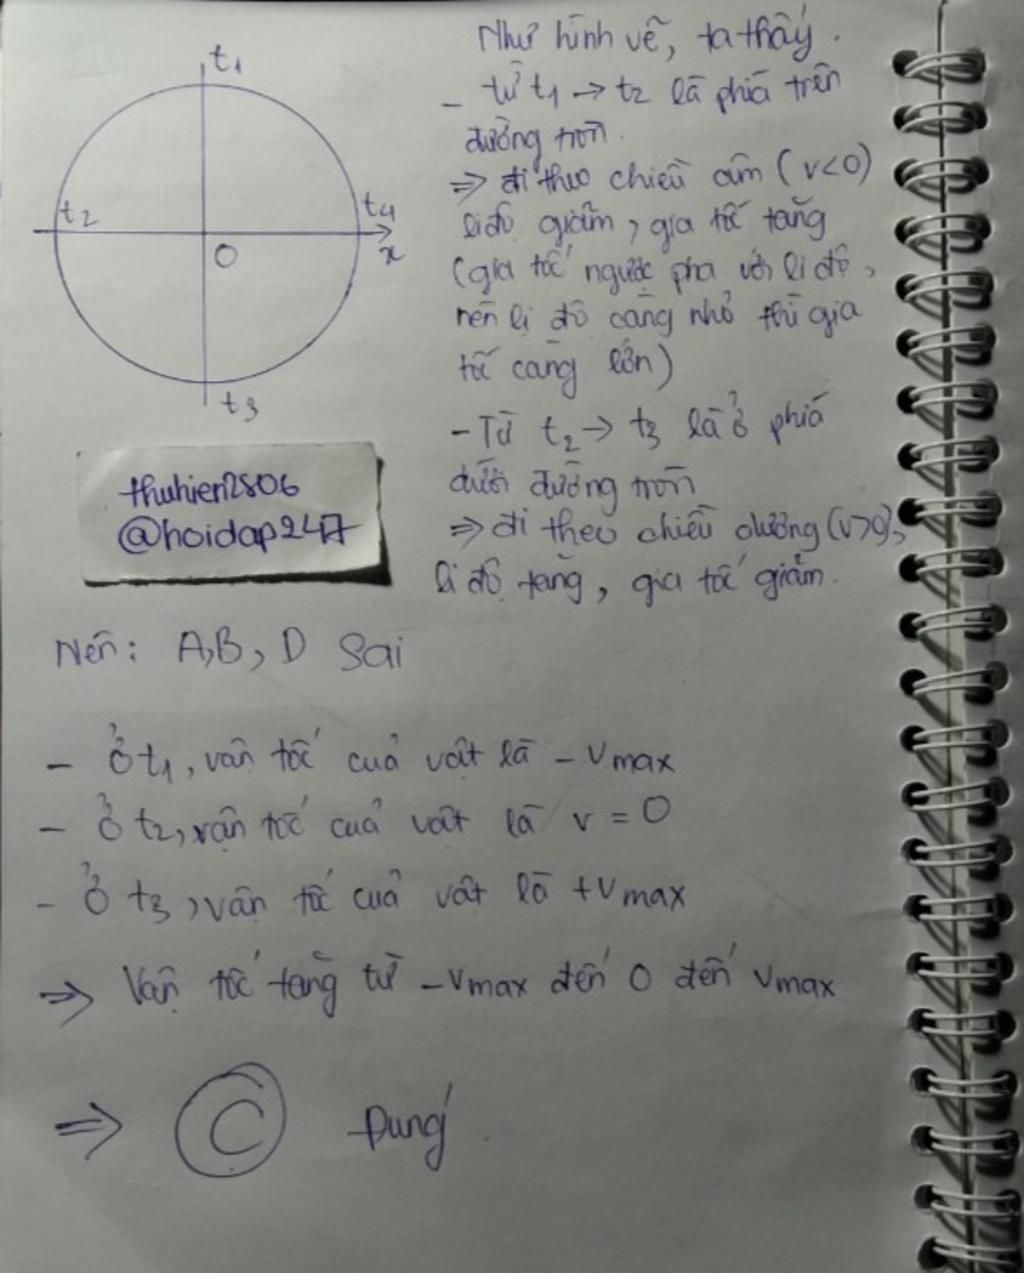 t1
t2
t4
O
x
t3
Như hình vẽ, ta thấy.
- từ t1 → t2 là phía trên
đường tròn.
⇒ đi theo chiều âm (v<0)
li độ giảm, gia tốc tăng
(gia tốc ngược pha với li độ,
nên li độ càng nhỏ thì gia
tốc càng lớn)
- Từ t2 → t3 là ở phía
dưới đường tròn
⇒ đi theo chiều dương (v>0),
li độ tăng, gia tốc giảm.
thuhien2806
@hoidap247
Nên: A,B, D Sai
- Ở t1, vận tốc của vật là -vmax
- Ở t2, vận tốc của vật là v = 0
- Ở t3, vận tốc của vật là +vmax
⇒ Vận tốc tăng từ -vmax đến 0 đến vmax
⇒ C Đúng.